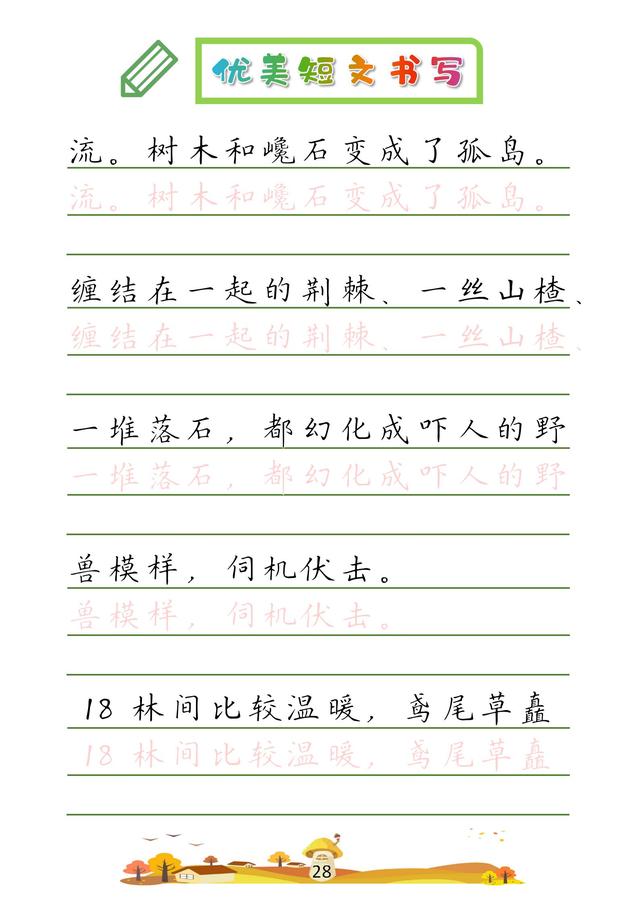 优美短文书写
流。树木和巉石变成了孤岛。
流。树木和巉石变成了孤岛。
缠结在一起的荆棘、一丝山楂、
缠结在一起的荆棘、一丝山楂、
一堆落石，都幻化成吓人的野
一堆落石，都幻化成吓人的野
兽模样，伺机伏击。
兽模样，伺机伏击。
18 林间比较温暖，鸢尾草矗
18 林间比较温暖，鸢尾草矗
28